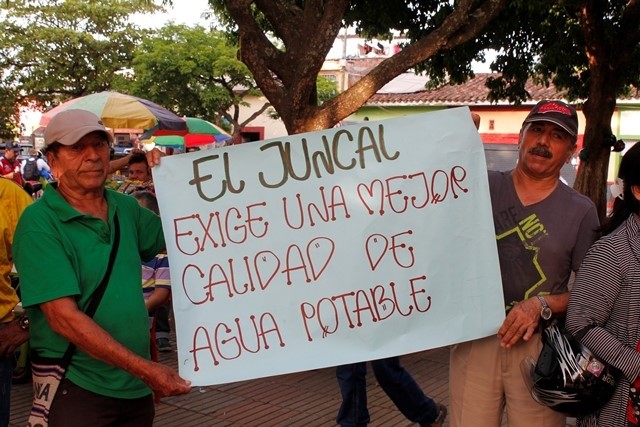 EL JUNCAL
EXIGE UNA MEJOR
CALIDAD DE
AGUA POTABLE